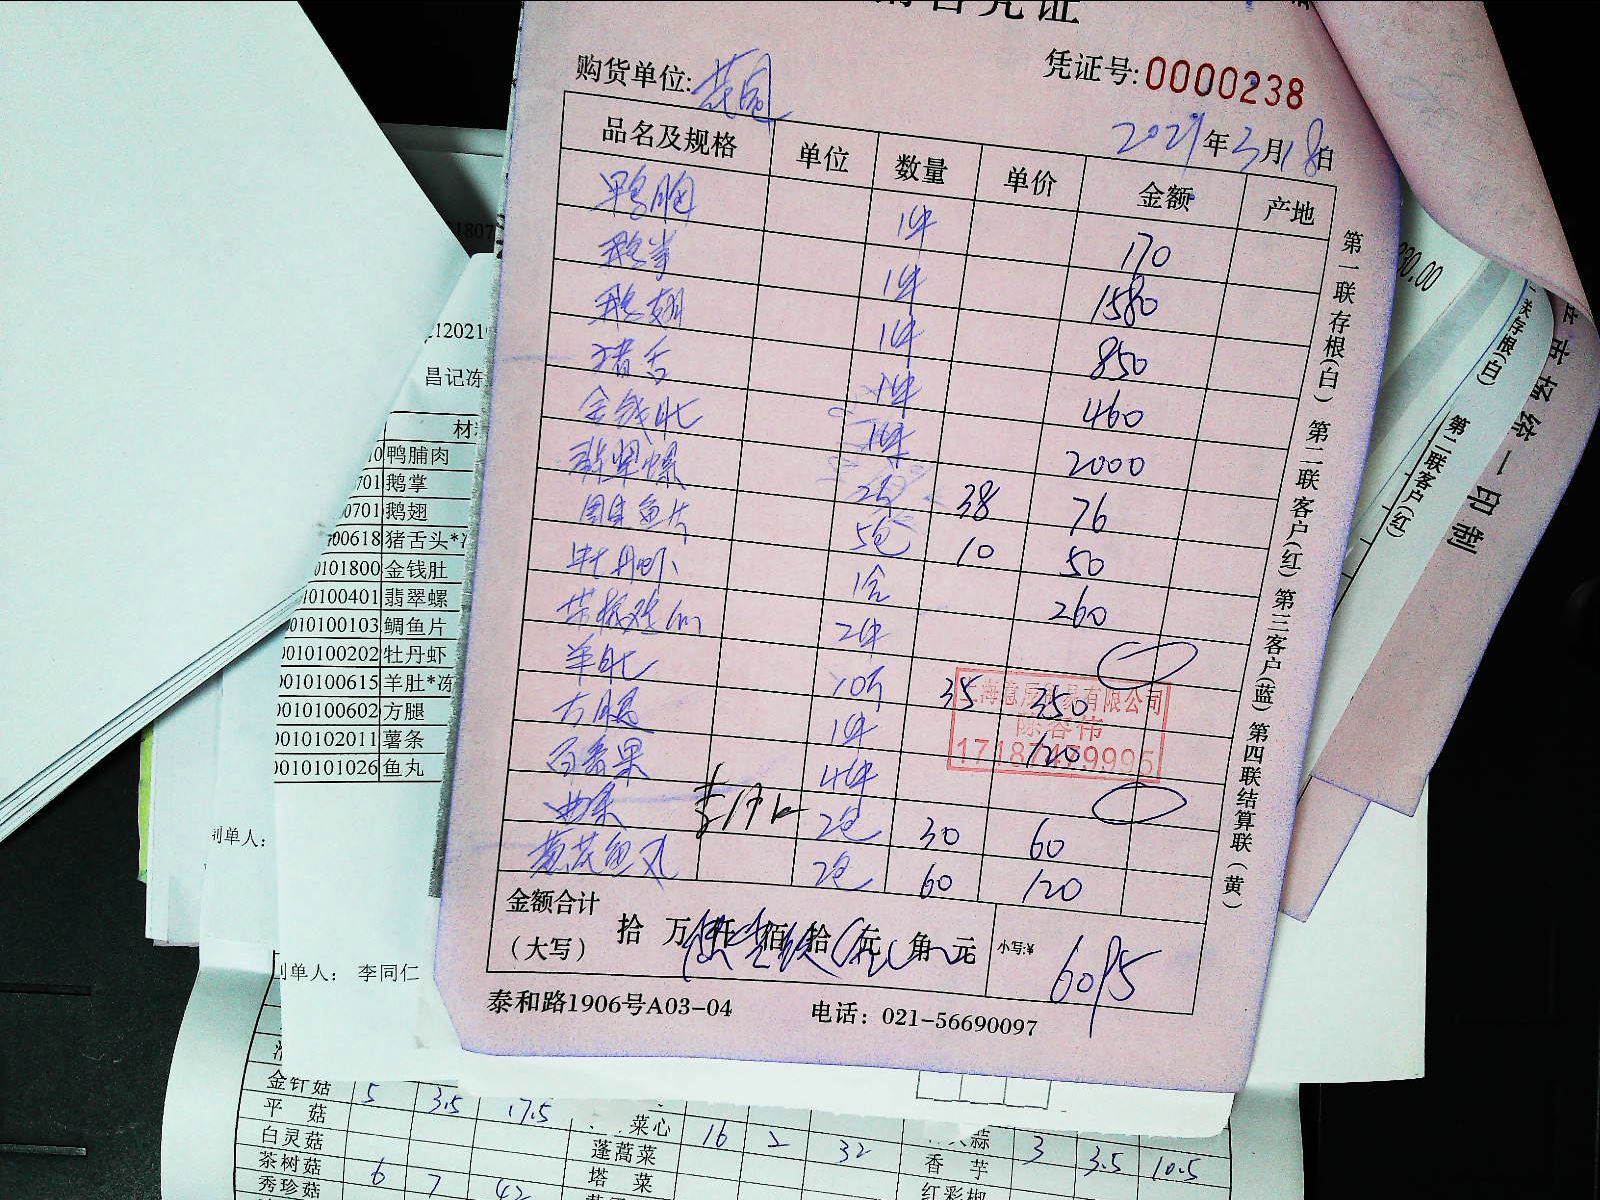 购货单位: 花园
凭证号: 0000238
2021年3月18日
品名及规格 单位 数量 单价 金额 产地
鸭胸 1件 170
鹅掌 1件 1580
鹅翅 1件 850
猪舌 1件 460
金钱肚 1件 2000
翡翠螺 2包 38 76
鲷鱼片 5包 10 50
牡丹虾 1合 260
2件
羊肚 10斤 35 350
方腿 1件 120
百香果 4件
2包 30 60
黄花鱼丸 2包 60 120
金额合计
(大写) 拾 万 仟 佰 拾 元 角 元 小写:¥ 6095
泰和路1906号A03-04 电话: 021-56690097
第一联存根(白) 第二联客户(红) 第三客户(蓝) 第四联结算联(黄)
有限公司
17187479995
昌记冻
鸭脯肉
701 鹅掌
0701 鹅翅
00618 猪舌头*冻
0101800 金钱肚
10100401 翡翠螺
0010100103 鲷鱼片
0010100202 牡丹虾
0010100615 羊肚*冻
0010100602 方腿
0010102011 薯条
0010101026 鱼丸
制单人:
制单人: 李同仁
第二联客户(红)
联存根(白)
市场统一印制
金针菇 5 3.5 17.5
平 菇 菜心 16 2 32 蒜 3 3.5 10.5
白灵菇 蓬蒿菜 香 芋
茶树菇 6 7 42 塔 菜 红彩椒
秀珍菇